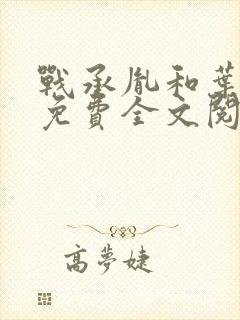 戰承胤和葉
免費全文閱
高夢婕